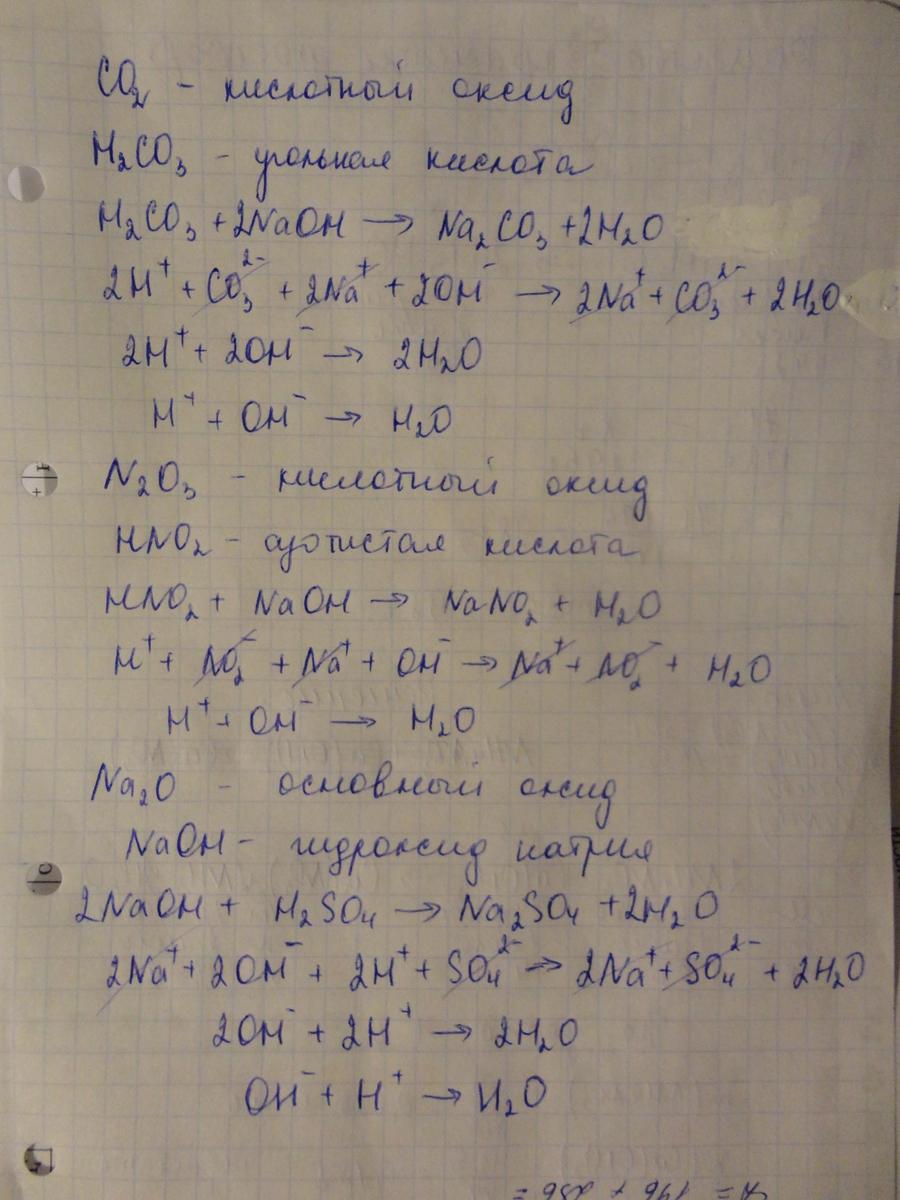 CO₂ - кислотный оксид
H₂CO₃ - угольная кислота
H₂CO₃ + 2NaOH → Na₂CO₃ + 2H₂O
2H⁺ + CO₃²⁻ + 2Na⁺ + 2OH⁻ → 2Na⁺ + CO₃²⁻ + 2H₂O
2H⁺ + 2OH⁻ → 2H₂O
H⁺ + OH⁻ → H₂O
N₂O₃ - кислотный оксид
HNO₂ - азотистая кислота
HNO₂ + NaOH → NaNO₂ + H₂O
H⁺ + NO₂⁻ + Na⁺ + OH⁻ → Na⁺ + NO₂⁻ + H₂O
H⁺ + OH⁻ → H₂O
Na₂O - основный оксид
NaOH - гидроксид натрия
2NaOH + H₂SO₄ → Na₂SO₄ + 2H₂O
2Na⁺ + 2OH⁻ + 2H⁺ + SO₄²⁻ → 2Na⁺ + SO₄²⁻ + 2H₂O
2OH⁻ + 2H⁺ → 2H₂O
OH⁻ + H⁺ → H₂O